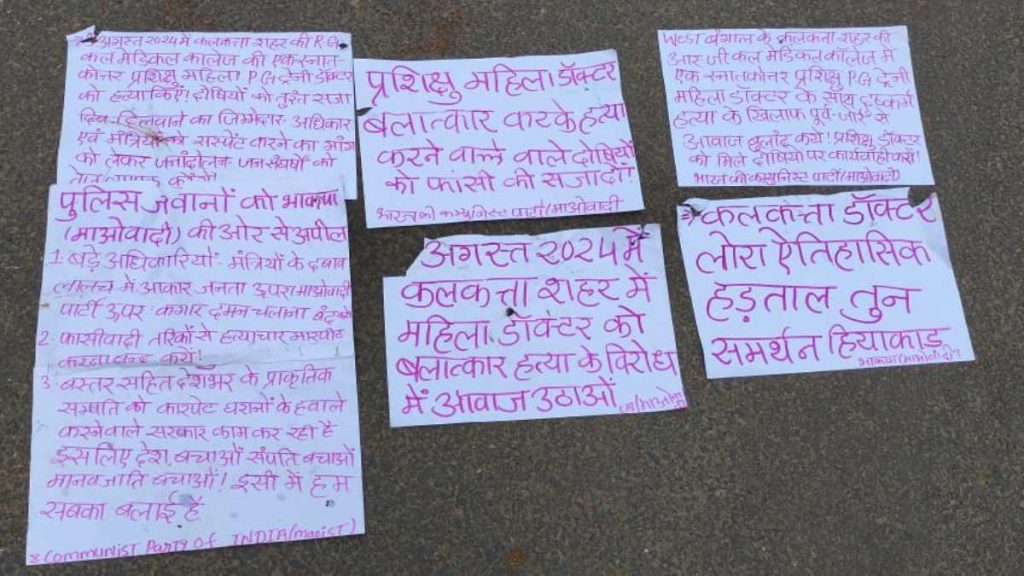 अगस्त 2024 में कलकत्ता शहर की R.G.
कल मेडिकल कॉलेज की एक स्नात-
कोत्तर प्रशिक्षु महिला PG ट्रेनी डॉक्टर
को हत्या किए! दोषियों को तुरंत सजा
दिलवाने का जिम्मेदार अधिकार
एवं मंत्रियों सस्पेंट करने का मांग
को लेकर जनांदोलन जनसंघर्षों को
पुलिस जवानों को भाकपा
(माओवादी) की ओर से अपील
1. बड़े अधिकारियों- मंत्रियों के दबाव
लालच में आकार जनता ऊपर। माओवादी
पार्टी ऊपर कगार दमन चलाना बंद करो
2- फासीवादी तरिकों से हत्याचार मारपीट
करना बन्द करो!
3. बस्तर सहित देशभर के प्राकृतिक
सम्पति को कारपेट घरानों के हवाले
करनेवाले सरकार काम कर रही है
इसलिए देश बचाओं संपति बचाओं
मानवजाति बचाओं! इसी में हम
सबका बलाई है
Communist Party Of INDIA (maoist)
प्रशिक्षु महिला डॉक्टर
बलात्कार करके हत्या
करने वाल्ले वाले दोषियों
को फांसी की सजा दो!
भारत की कम्युनिस्ट पार्टी (माओवादी
अगस्त 2024 में
कलकत्ता शहर में
महिला डॉक्टर को
बलात्कार हत्या के विरोध
में आवाज उठाओं
West बंगाल के कलकत्ता शहर की
आर जी कल मेडिकल कॉलेज में
एक स्नातकोत्तर प्रशिक्षु P.G ट्रेनी
महिला डॉक्टर के साथ दुष्कर्म
हत्या के खिलाफ पूर्व-जोर से
आवाज बुलांद करो! प्रशिक्षु डॉक्टर
को मिले दोषियो पर कार्यवाही करो!
भारत की कम्युनिस्ट पार्टी (माओवादी)
कलकत्ता डॉक्टर
लोरा ऐतिहासिक
हड़ताल तुन
समर्थन हियाकाड
भाकपा (माओवादी)